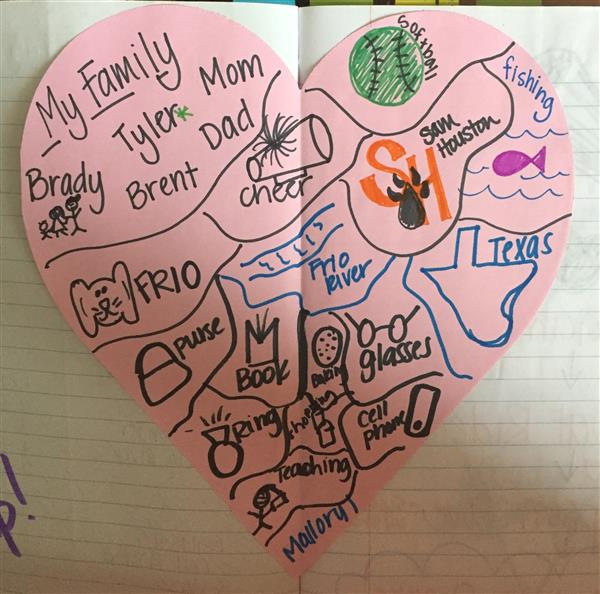 My Family
Mom
Tyler*
Dad
Brady
Brent
Softball
fishing
cheer
Sam
Houston
SH
FRIO
Frio
River
Texas
purse
Book
Baking
glasses
Ring
shopping
cell
phone
Teaching
Mallory
p!